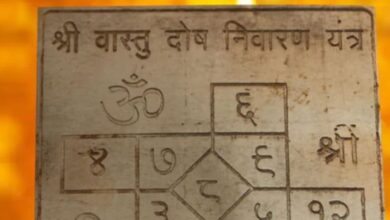 श्री वास्तु दोष निवारण यंत्र
ॐ ६
४ ७ ९ श्री
८
३ १२